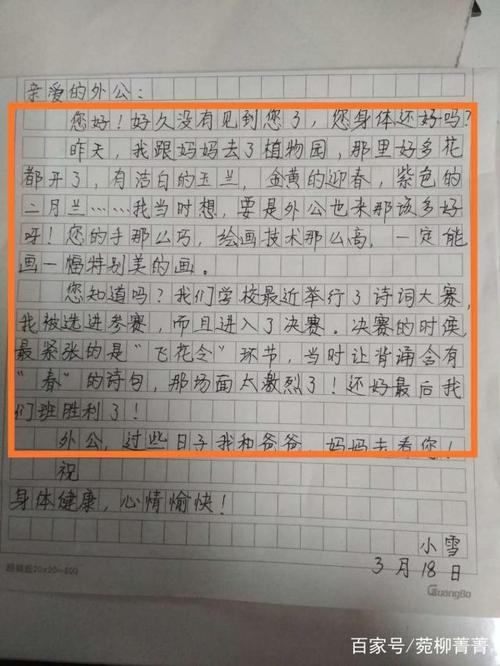 亲爱的外公:
您好!好久没有见到您了,您身体还好吗?
昨天,我跟妈妈去了植物园,那里好多花
都开了,有洁白的玉兰,金黄的迎春,紫色的
二月兰……我当时想,要是外公也来那该多好
呀!您的手那么巧,绘画技术那么高,一定能
画一幅特别美的画。
您知道吗?我们学校最近举行了诗词大赛,
我被选进参赛,而且进入了决赛。决赛的时候,
最紧张的是“飞花令”环节,当时让背诵含有
“春”的诗句,那场面太激烈了!还好最后我
们班胜利了!
外公,过些日子我和爸爸、妈妈去看您!
祝
身体健康,心情愉快!
小雪
3月18日
20×20=400
GuangBo
百家号/菀柳菁菁